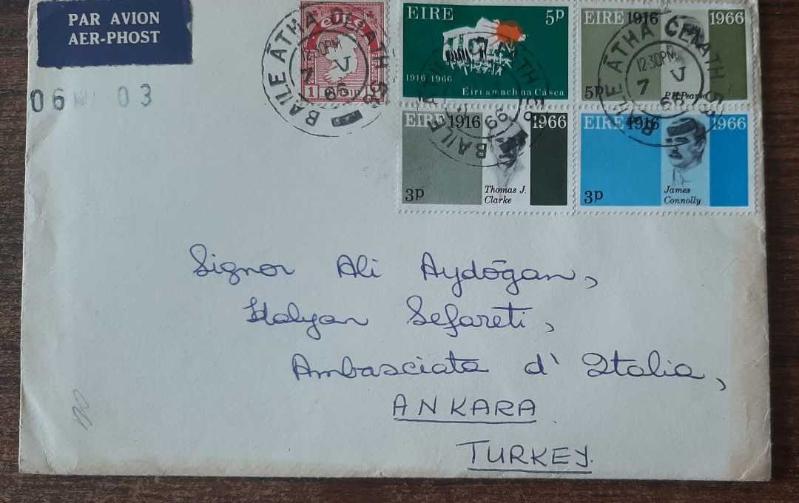 PAR AVION
AER-PHOST
BAILE ÁTHA CLIATH
12.30PM
7 V
66
1
EIRE 5p
1916-1966
Éirí amach na Cásca
EIRE 1916 1966
5p P.H. Pearse
BAILE ÁTHA CLIATH
66
BAILE ÁTHA CLIATH
12.30PM
7 V
66
06 03
EIRE 1916 1966
Thomas J.
Clarke
3p
EIRE 1916 1966
James
Connolly
3p
Signor Ali Aydōgan,
Italyan Sefareti,
Ambasciata d' Italia,
ANKARA
TURKEY.